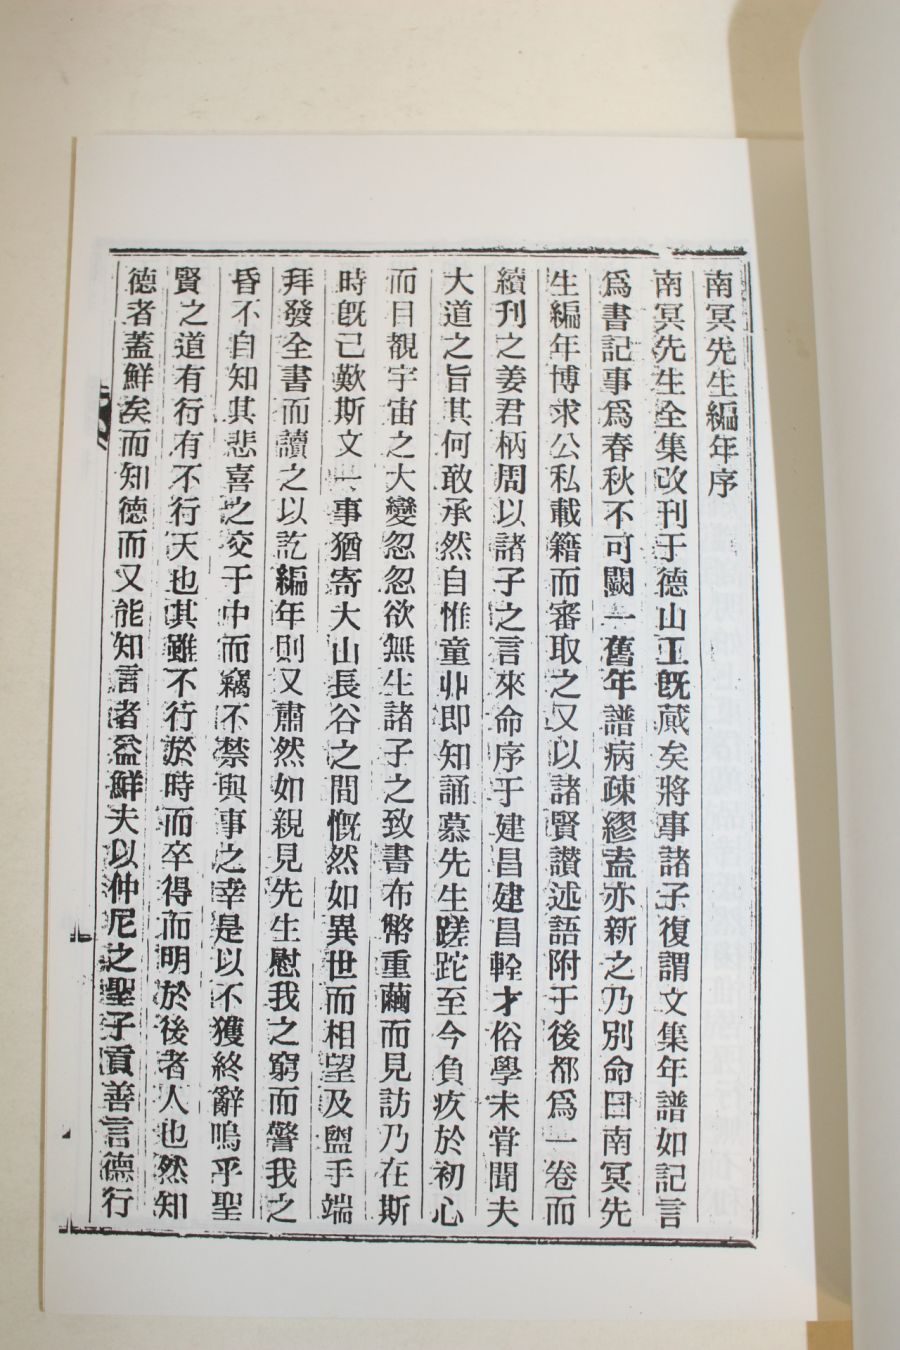 南冥先生編年序
南冥先生全集改刊于德山工旣蕆矣將事諸子復謂文集年譜如記言
爲書記事爲春秋不可闕一舊年譜病疎繆盍亦新之乃別命曰南冥先
生編年博求公私載籍而審取之又以諸賢讚述語附于後都爲一卷而
續刊之姜君柄周以諸子之言來命序于建昌建昌輇才俗學未甞聞夫
大道之旨其何敢承然自惟童丱即知誦慕先生蹉跎至今負疚於初心
而目覩宇宙之大變忽忽欲無生諸子之致書布幣重繭而見訪乃在斯
時旣已歎斯文一事猶寄大山長谷之間慨然如異世而相望及盥手端
拜發全書而讀之以訖編年則又肅然如親見先生慰我之窮而警我之
昏不自知其悲喜之交于中而竊不禁與事之幸是以不獲終辭嗚乎聖
賢之道有行有不行天也其雖不行於時而卒得而明於後者人也然知
德者蓋鮮矣而知德而又能知言者益鮮夫以仲尼之聖子貢善言德行